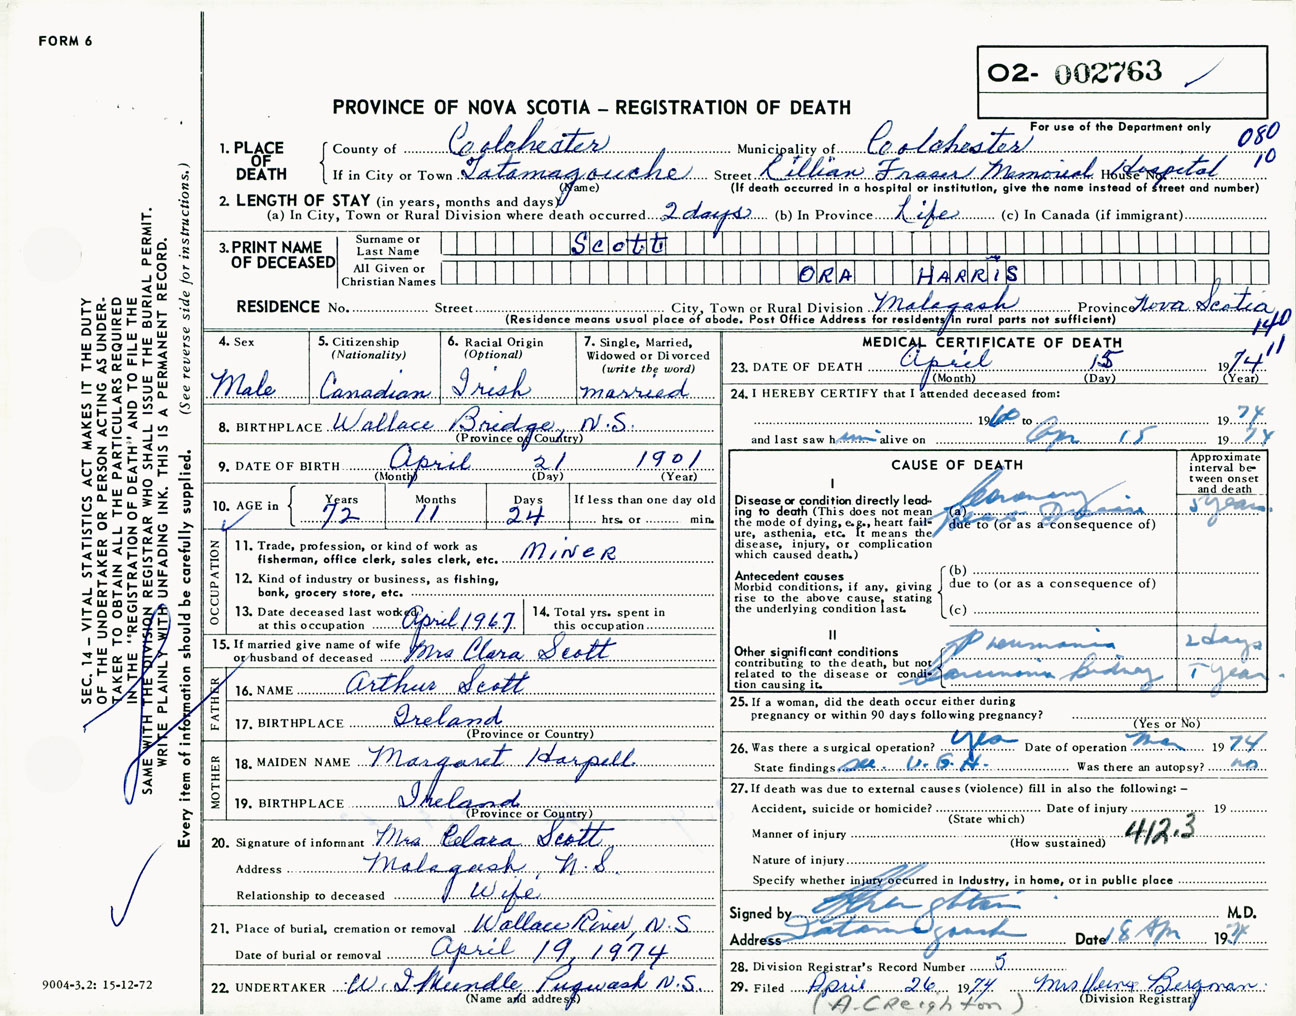 FORM 6
O2- 002763
PROVINCE OF NOVA SCOTIA – REGISTRATION OF DEATH
For use of the Department only
080
10
1. PLACE OF DEATH
County of Coolchester Municipality of Coolchester
If in City or Town Tatamagouche Street Lillian Fraser Memorial Hospital House No.
(Name) (If death occurred in a hospital or institution, give the name instead of street and number)
2. LENGTH OF STAY (in years, months and days)
(a) In City, Town or Rural Division where death occurred 2 days (b) In Province Life (c) In Canada (if immigrant)
3. PRINT NAME OF DECEASED
Surname or Last Name Scott
All Given or Christian Names ORA HARRIS
RESIDENCE No. Street City, Town or Rural Division Malagash Province Nova Scotia
(Residence means usual place of abode. Post Office Address for residents in rural parts not sufficient)
140
11
4. Sex Male
5. Citizenship (Nationality) Canadian
6. Racial Origin (Optional) Irish
7. Single, Married, Widowed or Divorced (write the word) married
8. BIRTHPLACE Wallace Bridge, N.S.
(Province or Country)
9. DATE OF BIRTH April 21 1901
(Month) (Day) (Year)
10. AGE in Years 72 Months 11 Days 24 If less than one day old hrs. or min.
OCCUPATION
11. Trade, profession, or kind of work as fisherman, office clerk, sales clerk, etc. MINER
12. Kind of industry or business, as fishing, bank, grocery store, etc.
13. Date deceased last worked at this occupation April 1967
14. Total yrs. spent in this occupation
15. If married give name of wife or husband of deceased Mrs Clara Scott
FATHER
16. NAME Arthur Scott
17. BIRTHPLACE Ireland
(Province or Country)
MOTHER
18. MAIDEN NAME Margaret Harpell
19. BIRTHPLACE Ireland
(Province or Country)
20. Signature of informant Mrs Clara Scott
Address Malagash, N.S.
Relationship to deceased Wife
21. Place of burial, cremation or removal Wallace River, N.S
Date of burial or removal April 19, 1974
22. UNDERTAKER W. I Mundle Pugwash N.S.
(Name and address)
MEDICAL CERTIFICATE OF DEATH
23. DATE OF DEATH April 15 1974
(Month) (Day) (Year)
24. I HEREBY CERTIFY that I attended deceased from:
1960 to 1974
and last saw him alive on Ap 15 1974
CAUSE OF DEATH
Approximate interval between onset and death
I
Disease or condition directly leading to death (This does not mean the mode of dying, e.g., heart failure, asthenia, etc. It means the disease, injury, or complication which caused death.)
(a) Coronary Heart Disease 5 years
due to (or as a consequence of)
Antecedent causes
Morbid conditions, if any, giving rise to the above cause, stating the underlying condition last.
(b)
due to (or as a consequence of)
(c)
II
Other significant conditions contributing to the death, but not related to the disease or condition causing it.
Pneumonia 2 days
Carcinoma Kidney 1 year
25. If a woman, did the death occur either during pregnancy or within 90 days following pregnancy?
(Yes or No)
26. Was there a surgical operation? yes Date of operation Mar 1974
State findings see V.G.H. Was there an autopsy? no
27. If death was due to external causes (violence) fill in also the following: –
Accident, suicide or homicide? Date of injury 19
(State which)
Manner of injury 412.3
(How sustained)
Nature of injury
Specify whether injury occurred in Industry, in home, or in public place
Signed by M.D.
Address Tatamagouche Date 18 Ap 1974
28. Division Registrar's Record Number 5
29. Filed April 26 1974 Bergman
(Division Registrar)
(A. CREIGHTON)
SEC. 14 – VITAL STATISTICS ACT MAKES IT THE DUTY
OF THE UNDERTAKER OR PERSON ACTING AS UNDER-
TAKER TO OBTAIN ALL THE PARTICULARS REQUIRED
IN THE "REGISTRATION OF DEATH" AND TO FILE THE
SAME WITH THE DIVISION REGISTRAR WHO SHALL ISSUE THE BURIAL PERMIT.
WRITE PLAINLY WITH UNFADING INK. THIS IS A PERMANENT RECORD.
Every item of information should be carefully supplied. (See reverse side for instructions.)
9004-3.2: 15-12-72